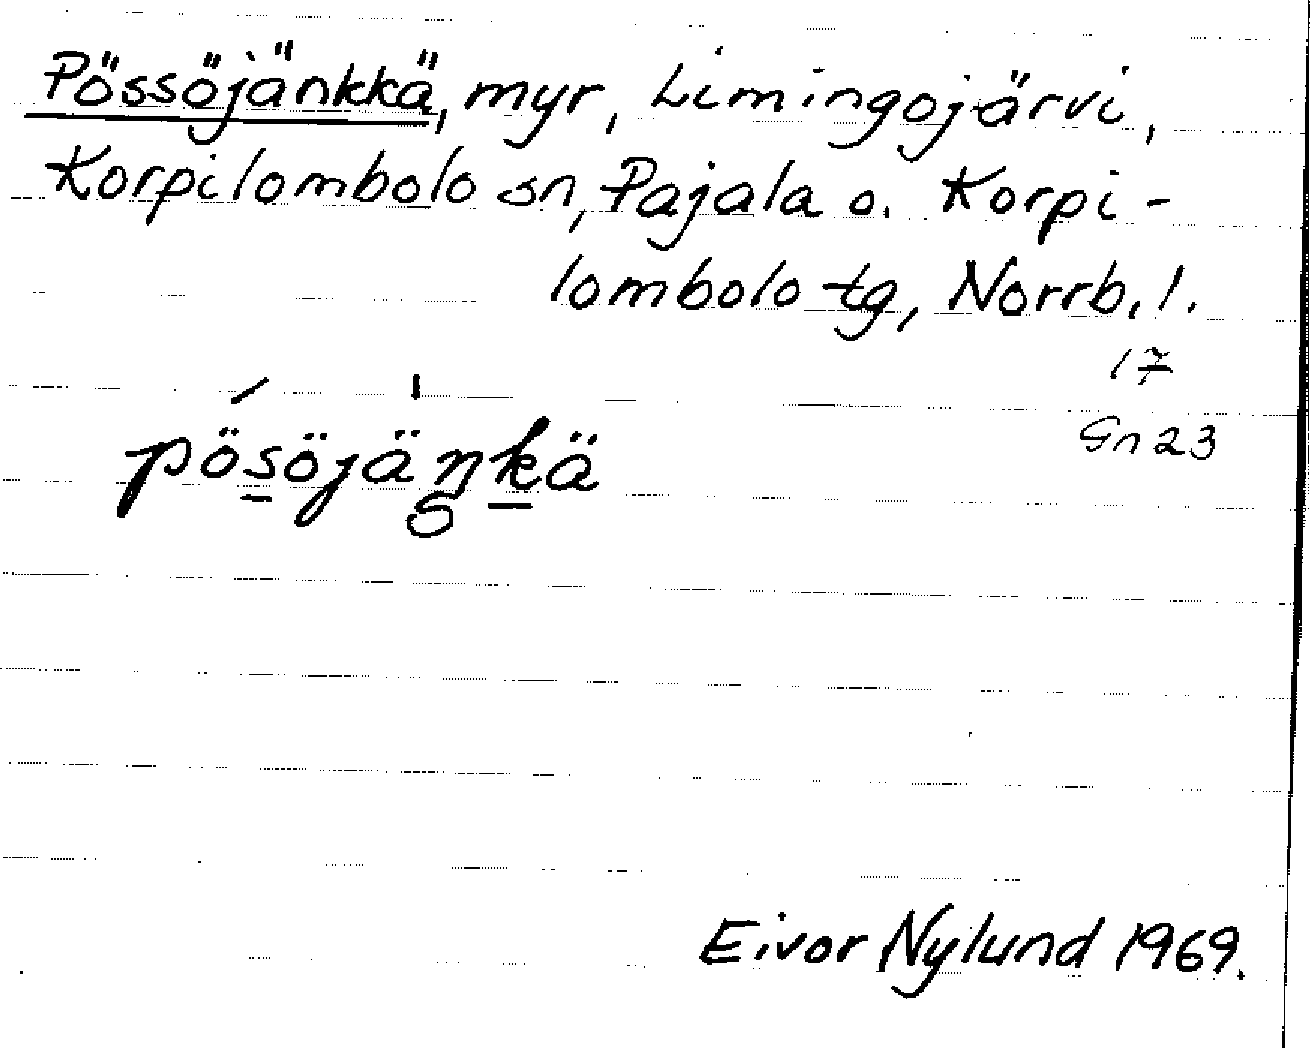 Pössöjänkkä, myr, Limingojärvi,
Korpilombolo sn, Pajala o. Korpi-
lombolo tg, Norrb. l.
17
Gn 23
pösöjäŋkä
Eivor Nylund 1969.